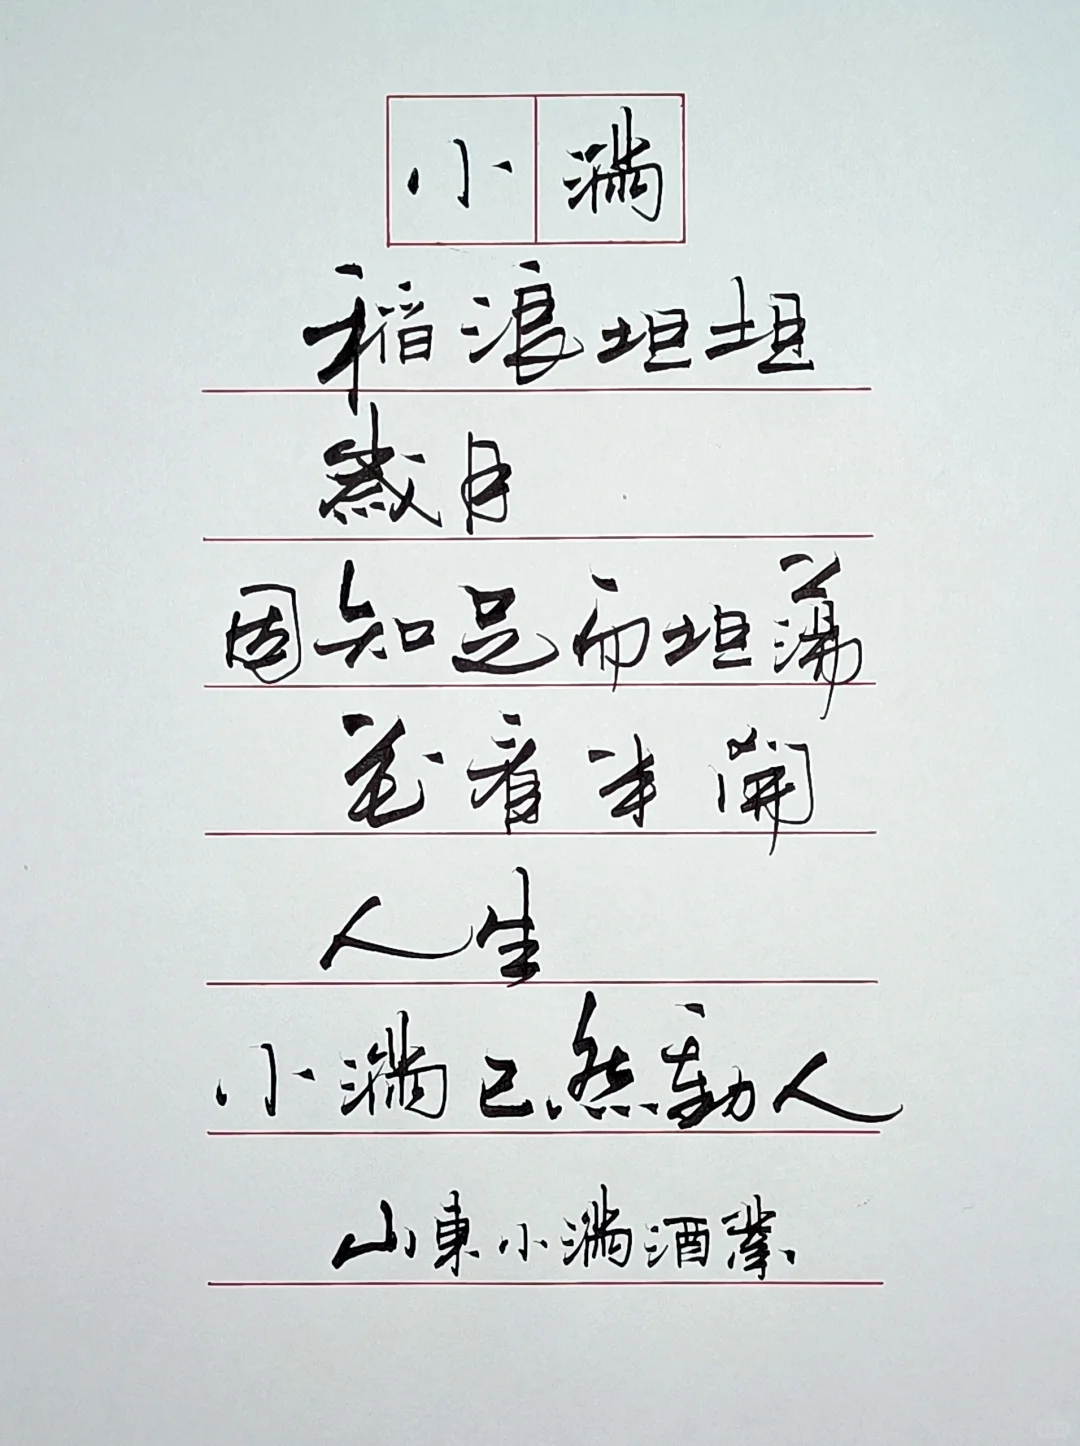 小满
稻浪坦坦
岁月
因知足而坦荡
花看半開
人生
小满已然動人
山東小满酒業